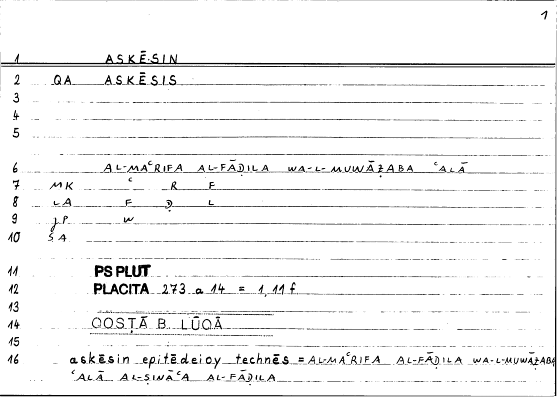 1
1 ASKĒSIN
2 QA ASKĒSIS
3
4
5
6 AL-MAʿRIFA AL-FĀḌILA WA-L-MUWĀẒABA ʿALĀ
7 MK ʿ R F
8 LA F Ḍ L
9 JP W
10 SA
11 PS PLUT
12 PLACITA 273 a 14 = 1,11 f.
13
14 QOSṬĀ B. LŪQĀ
15
16 askēsin epitēdeioy technēs = AL-MAʿRIFA AL-FĀḌILA WA-L-MUWĀẒABA
ʿALĀ AL-ṢINĀʿA AL-FĀḌILA